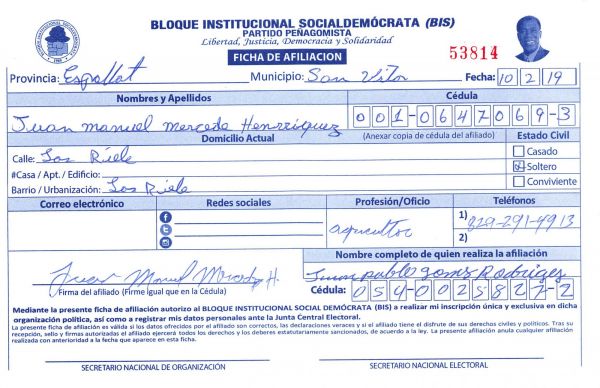 BLOQUE INSTITUCIONAL SOCIALDEMÓCRATA (BIS)
PARTIDO PEÑAGOMISTA
Libertad, Justicia, Democracia y Solidaridad
FICHA DE AFILIACION
53814
Provincia: Espaillat Municipio: San Vitor Fecha: 10 2 19
Nombres y Apellidos Cédula
Juan Manuel Mercede Henrriquez 001-0647069-3
(Anexar copia de cédula del afiliado)
Domicilio Actual Estado Civil
Calle: Los Riele Casado
#Casa / Apt. / Edificio: Soltero
Barrio / Urbanización: Los Riele Conviviente
Correo electrónico Redes sociales Profesión/Oficio Teléfonos
agricultor 1) 829-291-9913
2)
Nombre completo de quien realiza la afiliación
Juan Manuel Mercedes H. Juan pablo Gomez Rodriguez
Firma del afiliado (Firme igual que en la Cédula) Cédula: 054-0025827-2
Mediante la presente ficha de afiliación autorizo al BLOQUE INSTITUCIONAL SOCIAL DEMÓCRATA (BIS) a realizar mi inscripción única y exclusiva en dicha
organización política, así como a registrar mis datos personales ante la Junta Central Electoral.
La presente ficha de afiliación es válida si los datos ofrecidos por el afiliado son correctos, las declaraciones veraces y si el afiliado tiene el disfrute de sus derechos civiles y políticos. Tras su
recepción, sello y firmas autorizadas el afiliado ejercerá todos los derechos y los deberes estatutariamente sancionados, de acuerdo a la ley. La presente afiliación anula cualquier afiliación
realizada con anterioridad a la fecha que aparece en esta ficha.
SECRETARIO NACIONAL DE ORGANIZACIÓN SECRETARIO NACIONAL ELECTORAL